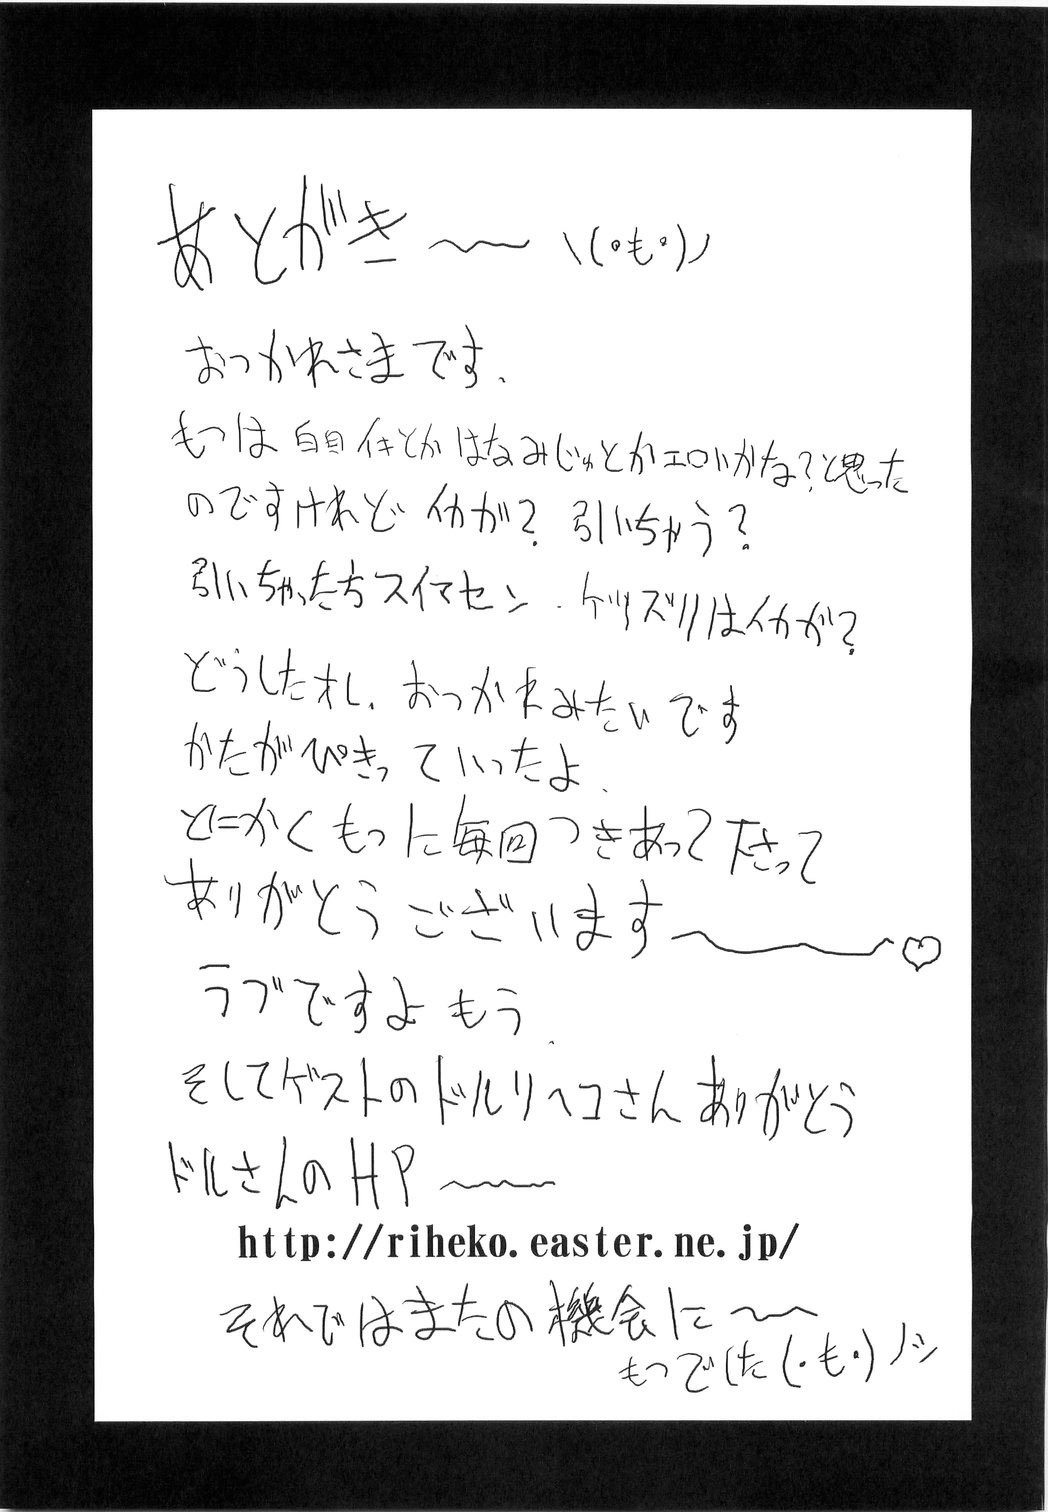 あとがき〜 \(°も°)ノ
おつかれさまです、
もつは白目イキとかはなみじゅとかエロいかな?と思った
のですけれどイカが? 引いちゃう?
引いちゃったらスイマセン. ケツズリはイカが?
どうしたオレ、おつかれみたいです
かたがぴきっていったよ、
とにかくもつに毎回つきあって下さって
ありがとうございます〜♡
ラブですよもう、
そしてゲストのドルリヘコさんありがとう
ドルさんのHP〜
http://riheko.easter.ne.jp/
それではまたの機会に〜
もつでした(・も・)ノシ